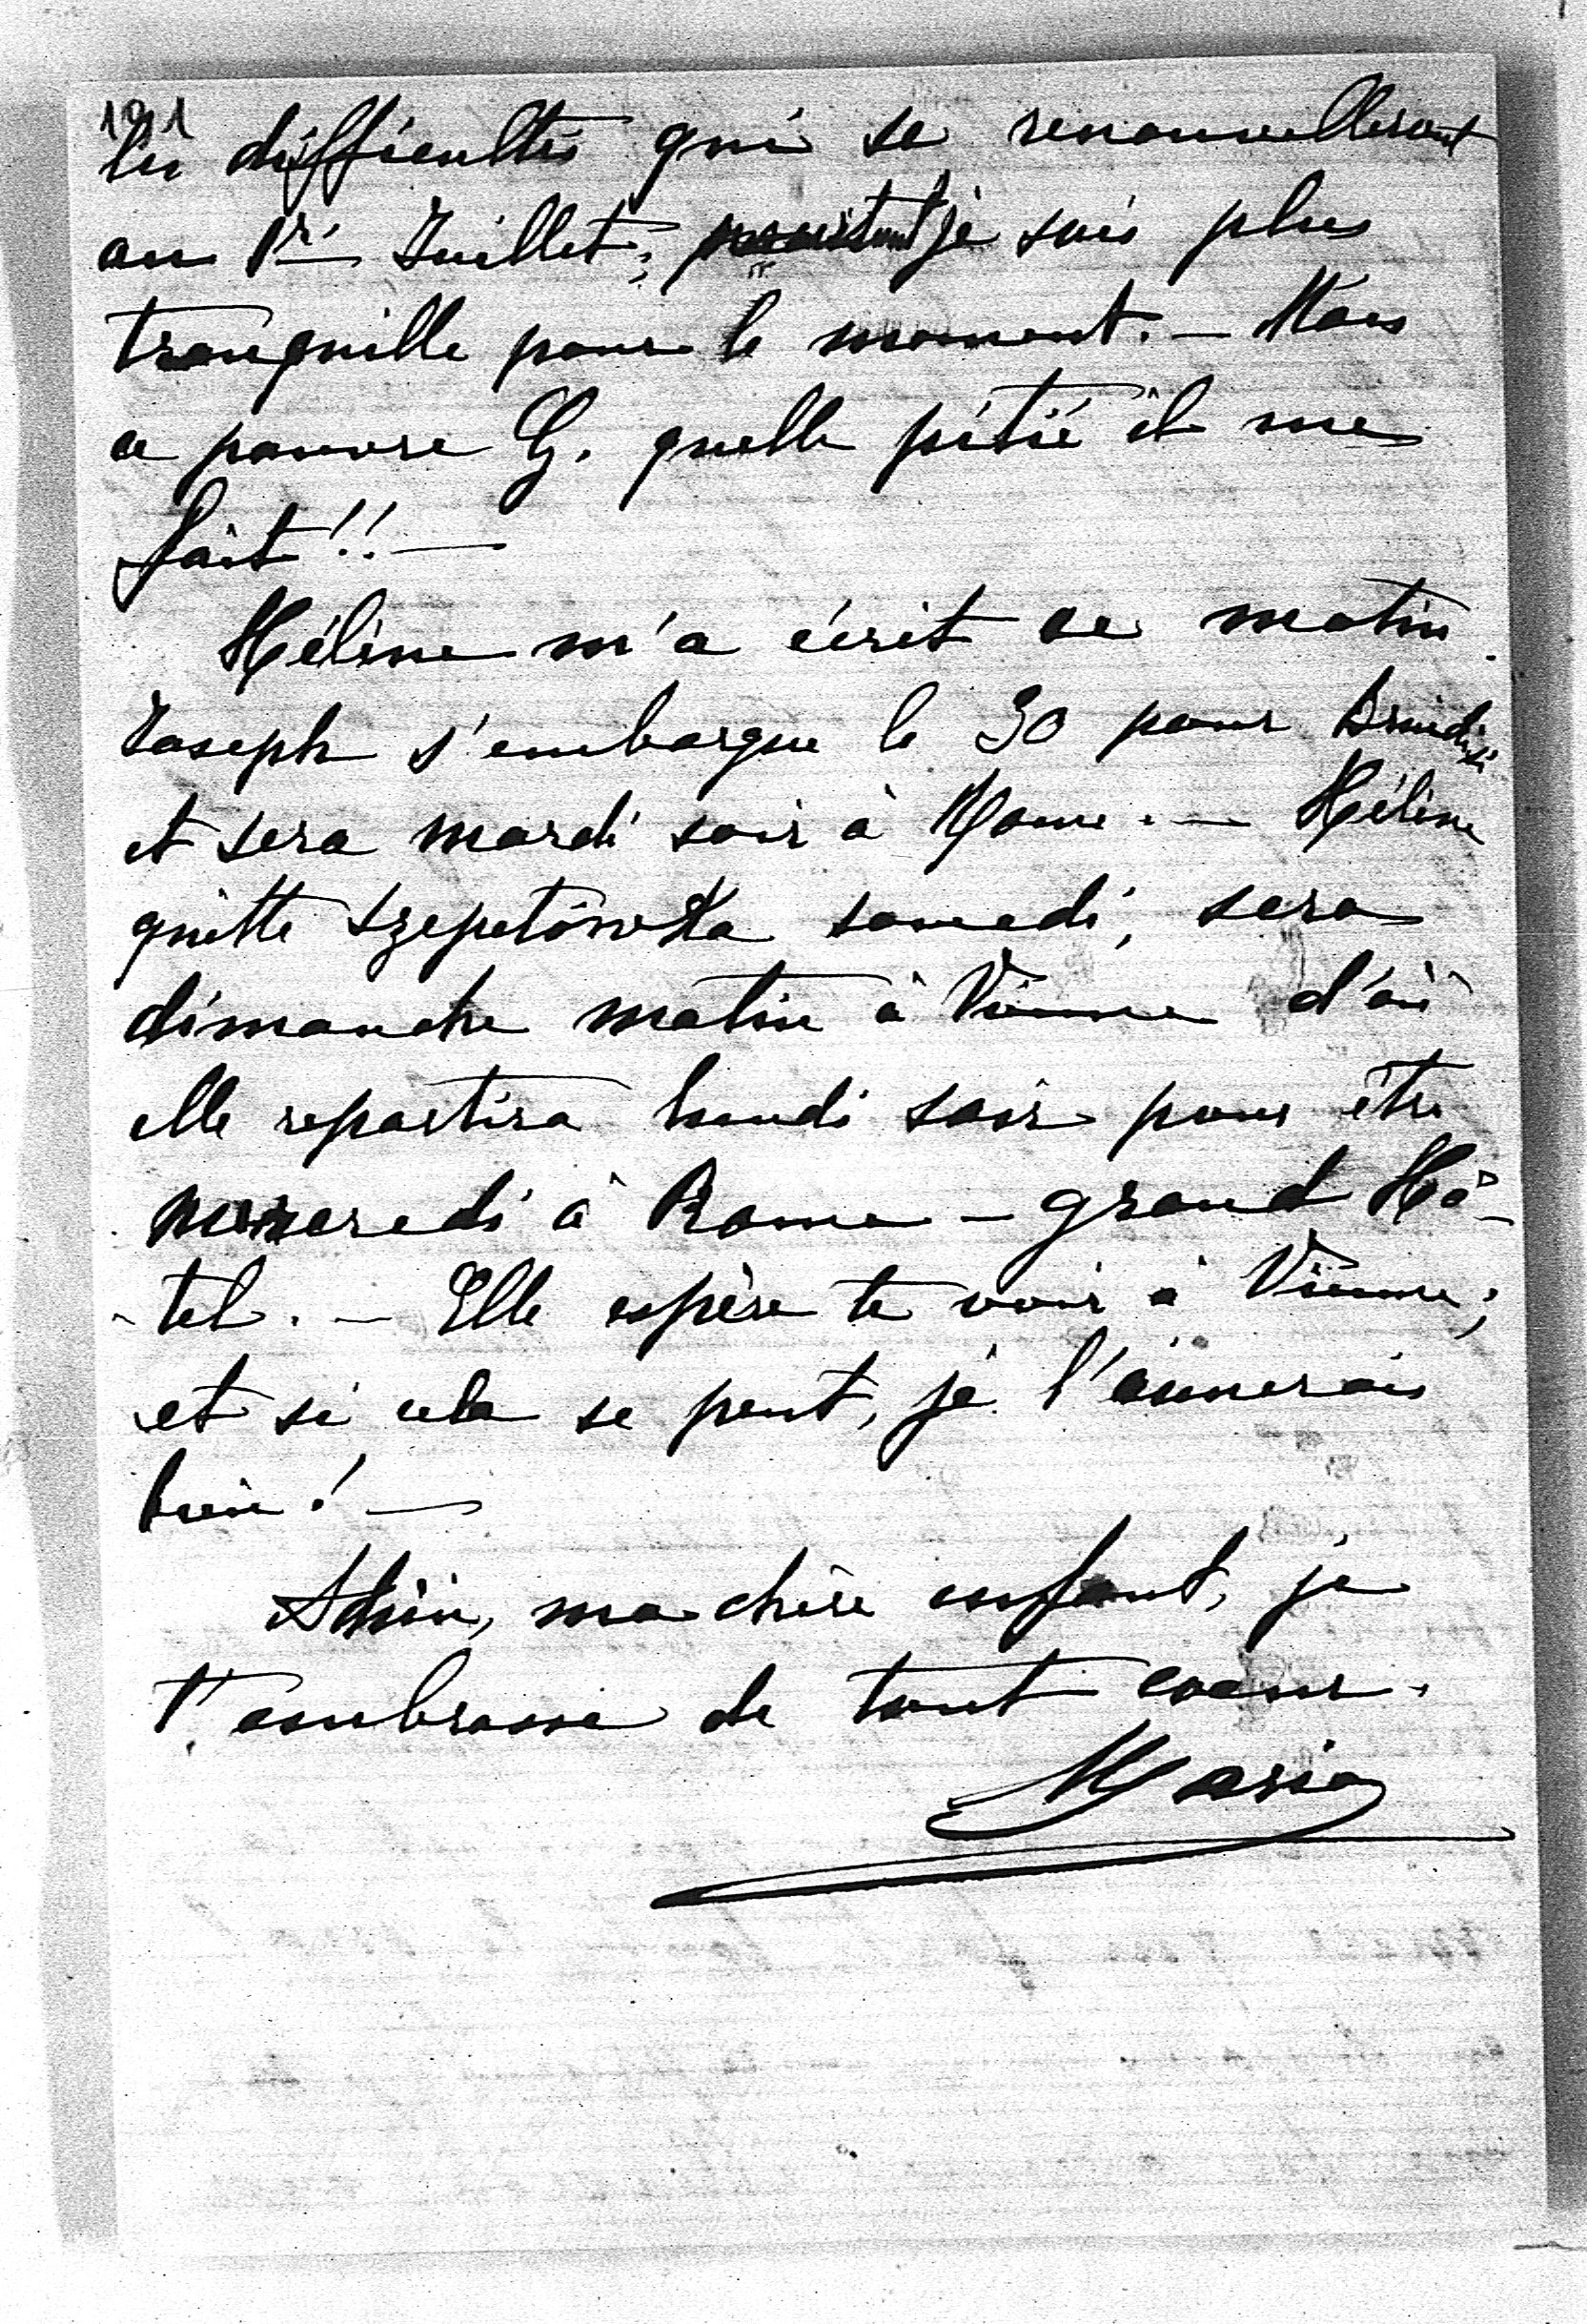 121
les difficultés qui se renouvelleront
au 1er Juillet; pourtant je suis plus
tranquille pour le moment. — Mais
ce pauvre G. quelle pitié il me
fait!! —
Hélène m'a écrit ce matin.
Joseph s'embarque le 30 pour Brindisi
et sera mardi soir à Rome. — Hélène
quitte Szepetówka samedi, sera
dimanche matin à Vienne d'où
elle repartira lundi soir pour être
mercredi à Rome — grand Hô-
-tel. — Elle espère te voir à Vienne;
et si cela se peut, je l'aimerais
bien! —
Adieu, ma chère enfant, je
t'embrasse de tout coeur.
Maria